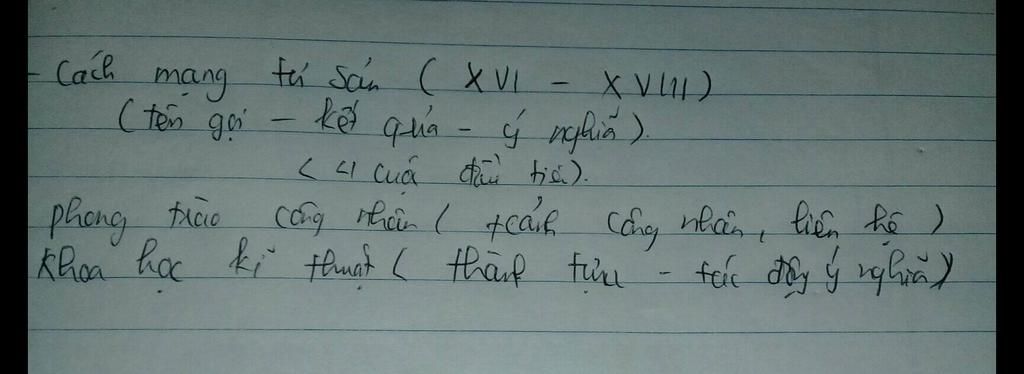 - Cách mạng tư sản ( XVI - XVIII )
( tên gọi - kết quả - ý nghĩa ).
( 4 cuộc đầu tiên ).
phong trào công nhân ( + cảnh công nhân, liên hệ )
khoa học kĩ thuật ( thành tựu - tác động ý nghĩa )